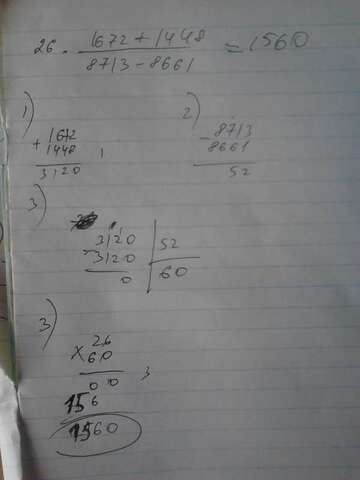 26 · 1672 + 1448 / 8713 - 8661 = 1560
1)
2)
+ 1672
1448
3120
- 8713
8661
52
3)
3120 | 52
- 3120 | 60
0
3)
× 26
60
00
156
1560